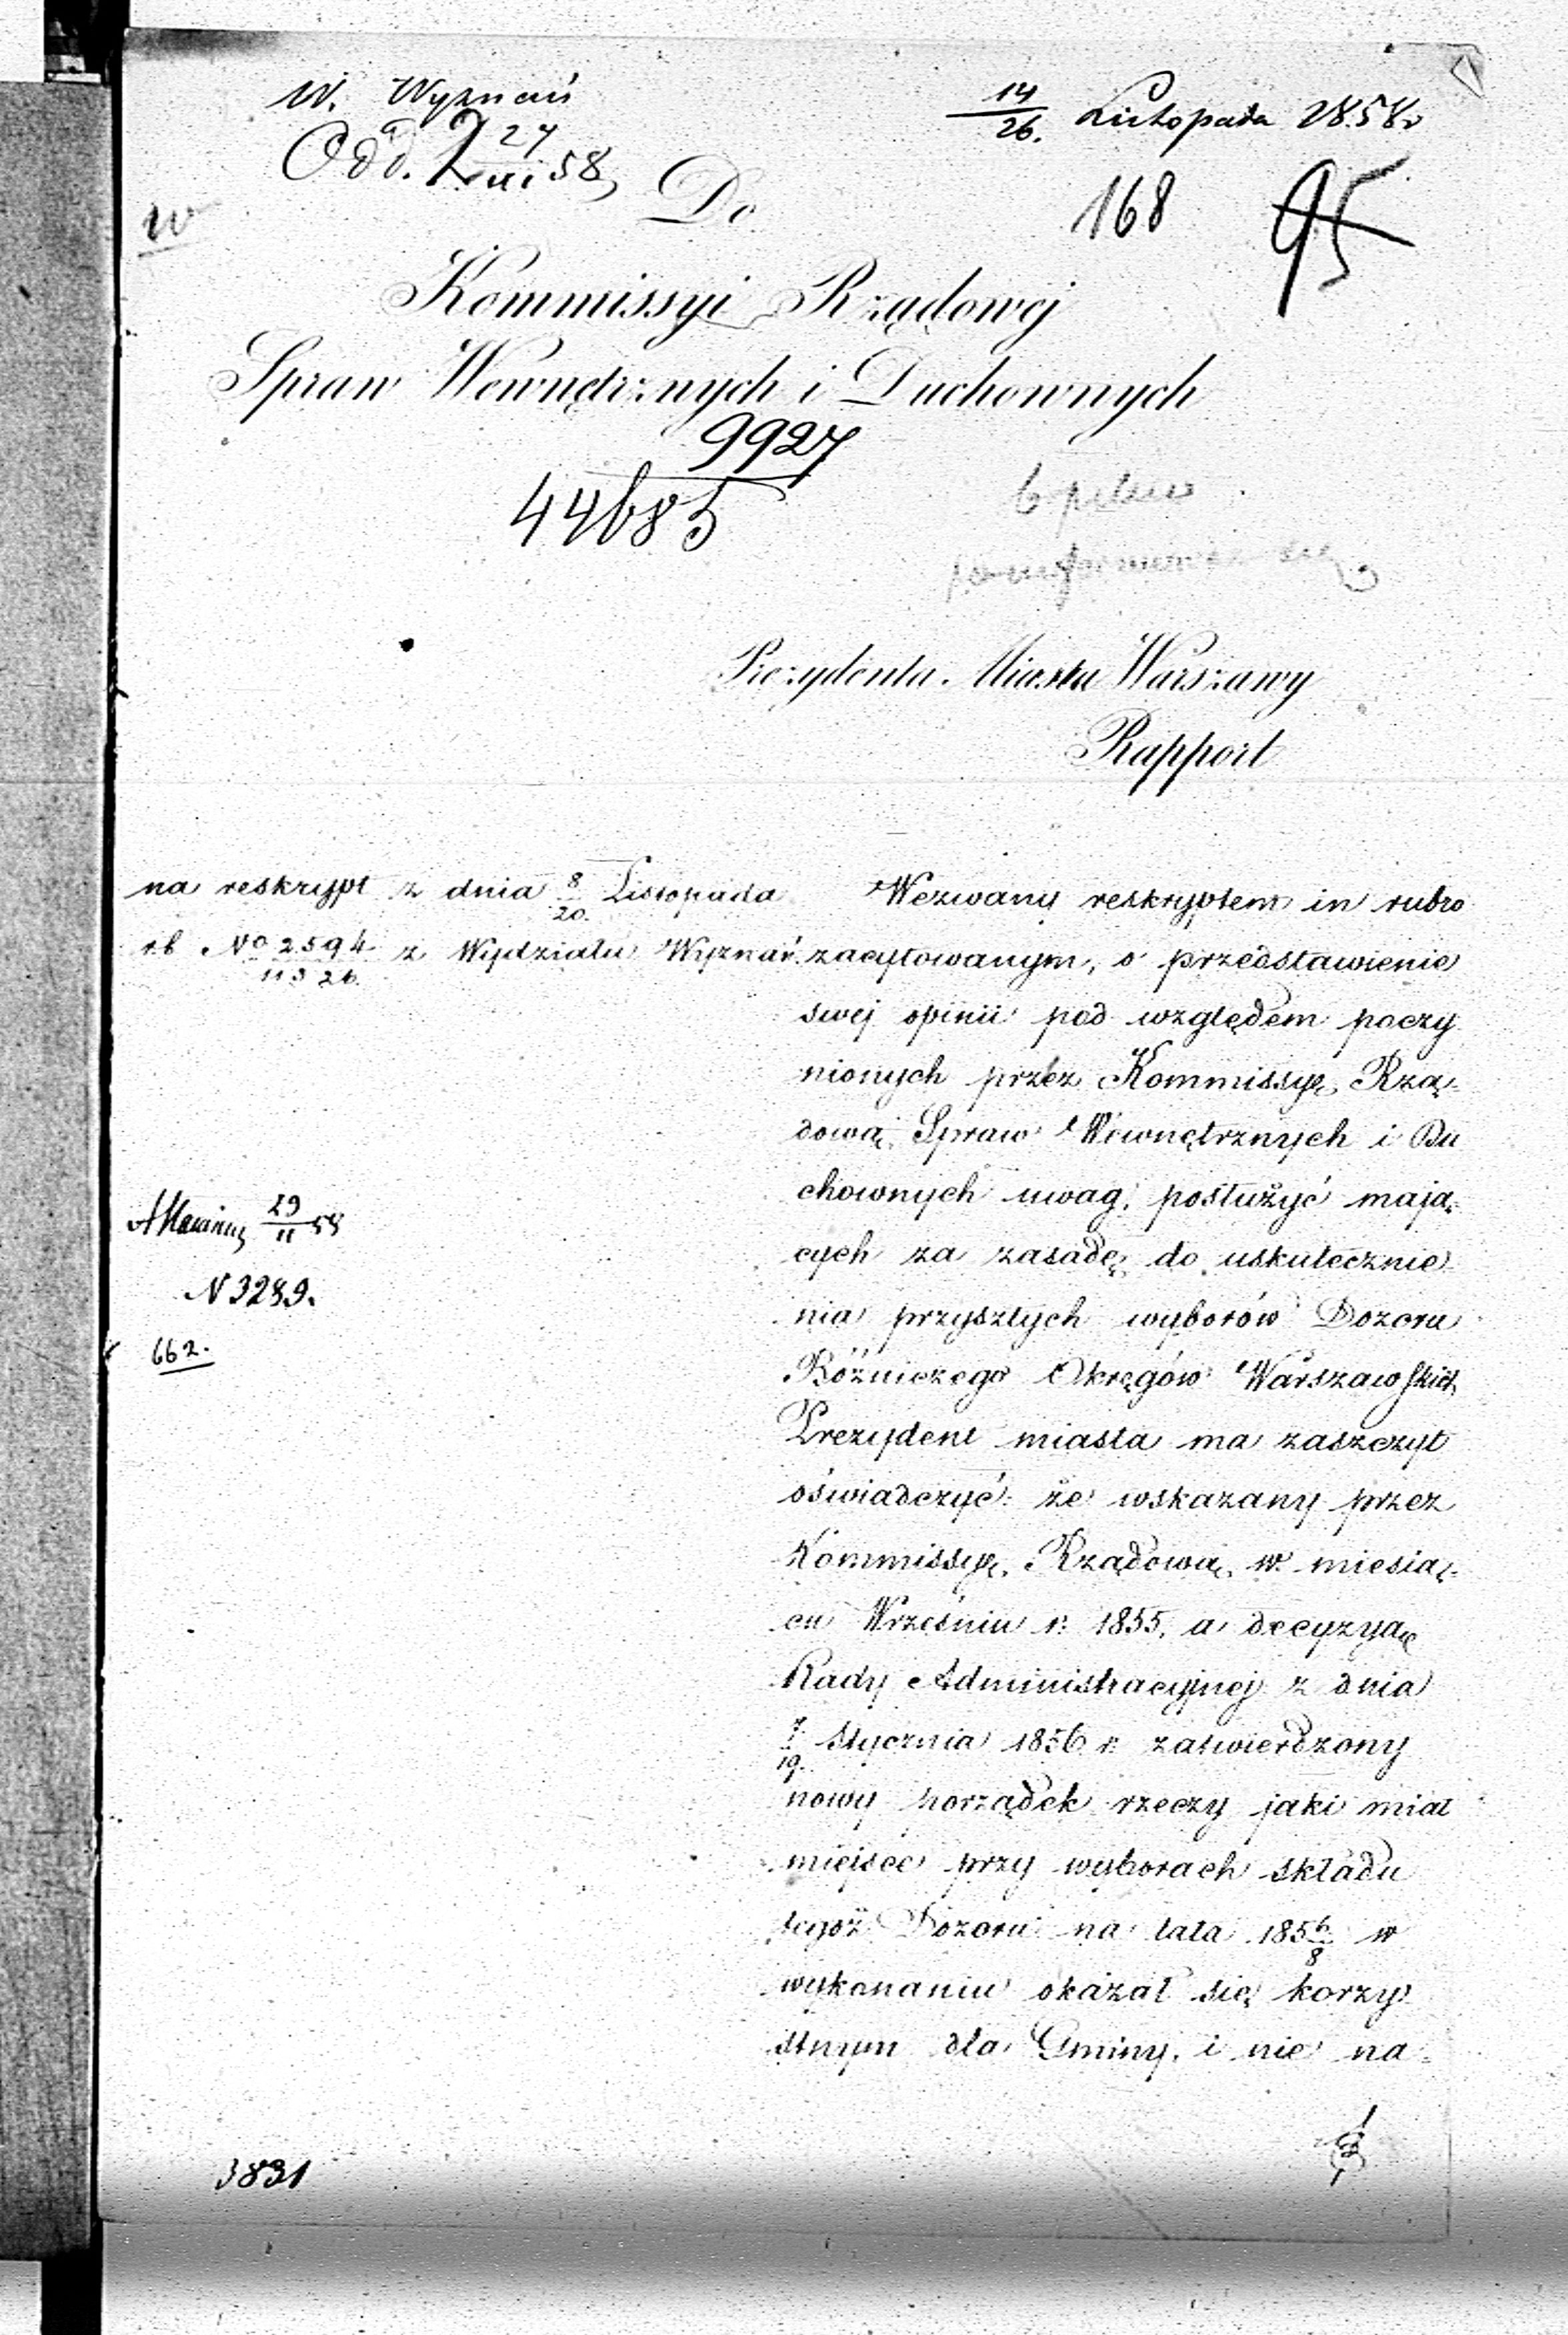 W. Wyznań
14/26. Listopada 1858 r
Odd. 27/XI 58
Do
168 95
w
Kommissyi Rządowej
Spraw Wewnętrznych i Duchownych
9927
44685
Prezydenta Miasta Warszawy
Rapport
na reskrypt z dnia 8/20. Listopada
r.b No 2594/11326. z Wydziału Wyznań.
Wezwany reskryptem in rubro
zacytowanym, o przedstawienie
swej opinii pod względem poczy
nionych przez Kommissyę Rzą-
dową Spraw Wewnętrznych i Du
chownych uwag, posłużyć mają-
cych za zasadę do uskutecznie
nia przyszłych wyborów Dozoru
Bóżniczego Okręgów Warszawskich,
Prezydent miasta ma zaszczyt
oświadczyć: że wskazany przez
Kommissyę Rządową w miesią-
cu Wrześniu r: 1855, a decyzyą
Rady Administracyjnej z dnia
7/19. Stycznia 1856 r: zatwierdzony
nowy porządek rzeczy jaki miał
miejsce przy wyborach składu
tegoż Dozoru na lata 1856/8 w
wykonaniu okazał się korzy
stnym dla Gminy, i nie na-
29/11 58
N 3289.
662.
3831